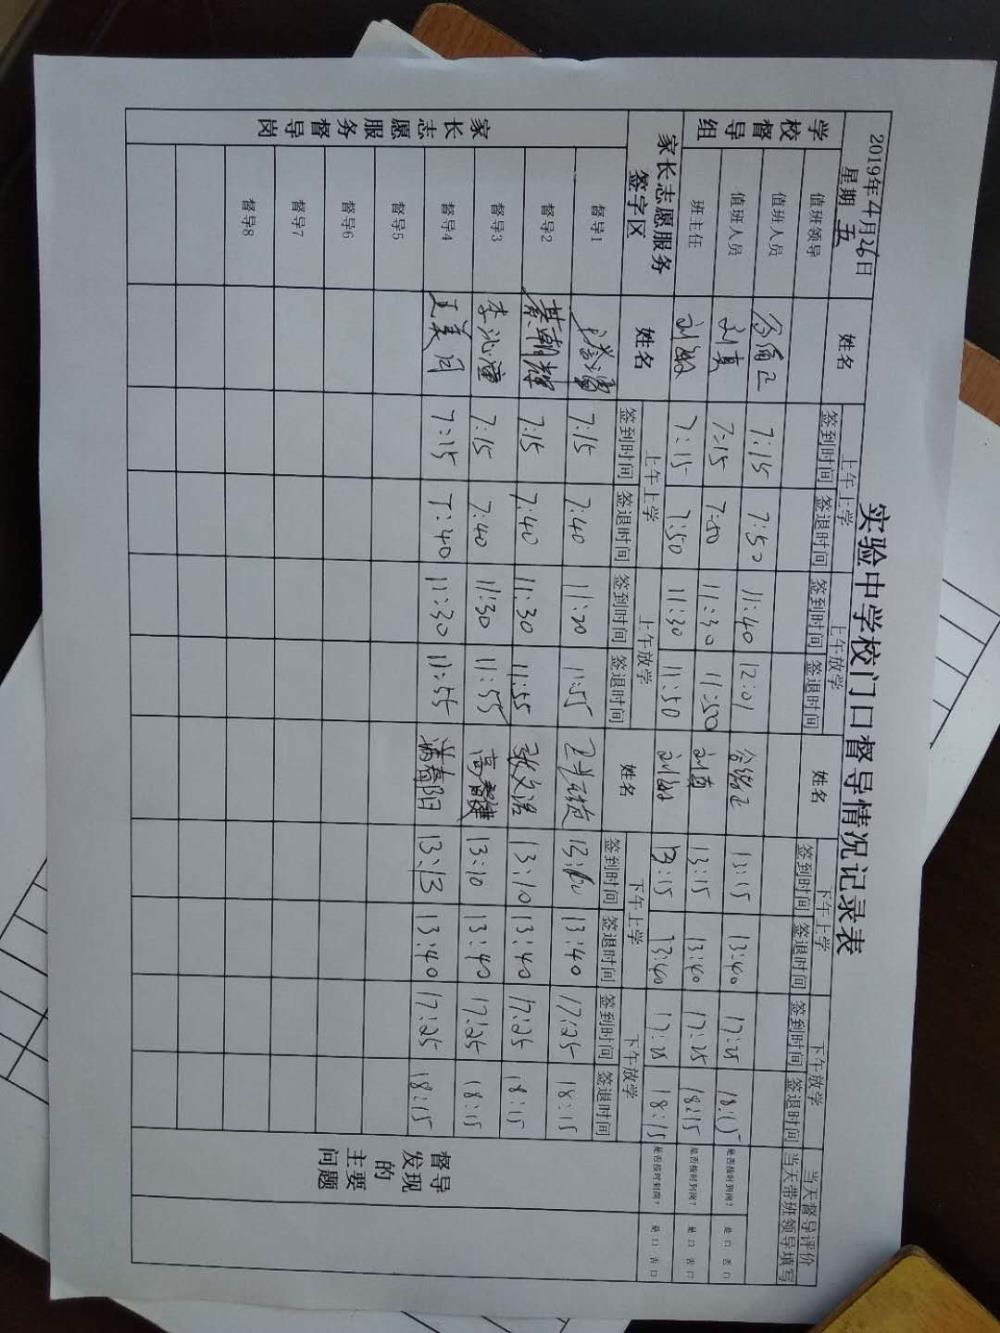 实验中学校门口督导情况记录表
2019年4月26日
星期 五
姓名 上午上学 上午放学 姓名 下午上学 下午放学 当天督导评价
签到时间 签退时间 签到时间 签退时间 签到时间 签退时间 签到时间 签退时间 当天带班领导填写
学校督导组
值班领导
值班人员 7:15 7:50 11:40 12:01 13:15 13:40 17:25 18:15 是否按时到岗? 是 口 否 口
值班人员 刘真 7:15 7:50 11:30 11:50 刘真 13:15 13:40 17:25 18:15 是否按时到岗? 是 口 否 口
班主任 刘敏 7:15 7:50 11:30 11:50 刘敏 13:15 13:40 17:25 18:15 是否按时到岗? 是 口 否 口
家长志愿服务
签字区
姓名 上午上学 上午放学 姓名 下午上学 下午放学
签到时间 签退时间 签到时间 签退时间 签到时间 签退时间 签到时间 签退时间
家长志愿服务督导岗
督导1 7:15 7:40 11:20 11:55 13:40 17:25 18:15
督导2 7:15 7:40 11:30 11:55 张文浩 13:10 13:40 17:25 18:15
督导3 李沁潼 7:15 7:40 11:30 11:55 13:10 13:40 17:25 18:15
督导4 7:15 7:40 11:30 11:55 13:13 13:40 17:25 18:15
督导5
督导6
督导7
督导8
督导
发现
的
主要
问题